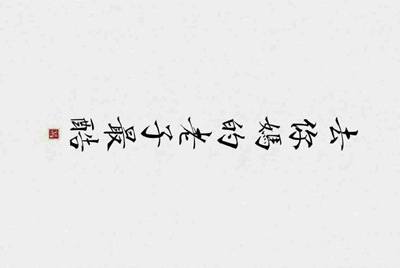 去你妈的老子最酷